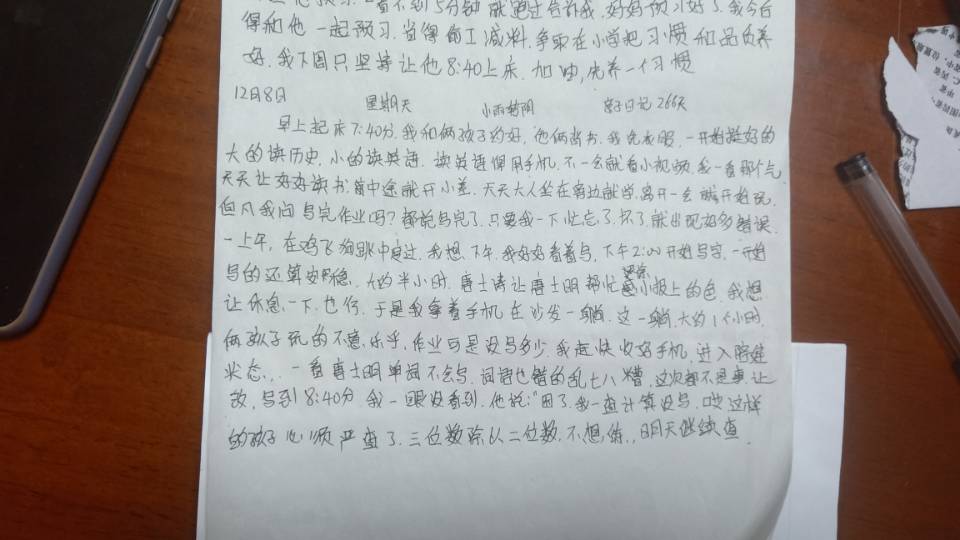 看不到5分钟就跑过告诉我,好好预习好了.我今后
得和他一起预习.省得偷工减料.争取在小学把习惯和品质养
好.我下周只坚持让他8:40上床.加油,先养一个习惯
12月8日 星期天 小雨转阴 亲子日记266天
早上起床7:40分.我和俩孩子约好,他俩背书.我洗衣服,一开始挺好的
大的读历史.小的读英语.读英语得用手机,不一会就看小视频.我一看那个气
天天让好好读书,背中途就开小差.天天大人坐在旁边就学,离开一会就开始玩.
但凡我问写完作业吗?都说写完了.只要我一下忙忘了.坏了就出现好多错误.
一上午,在鸡飞狗跳中度过.我想,下午,我好好看着写,下午2:00开始写字,一开始
写的还算安稳.大约半小时.唐士涛让唐士明帮忙小报上的色.我想
让休息一下,也行.于是我拿着手机在沙发一躺.这一躺大约1个小时.
俩孩子玩的不亦乐乎.作业可是没写多少.我赶快收好手机,进入陪建
状态... 一看唐士明单词不会写.词语也错的乱七八糟.这次都不是事.让
改,写到8:40分.我一眼没看到.他说:"困了.我一查计算没写.哎这样
的孩子必须严查了.三位数除以二位数,不想做..明天继续查.